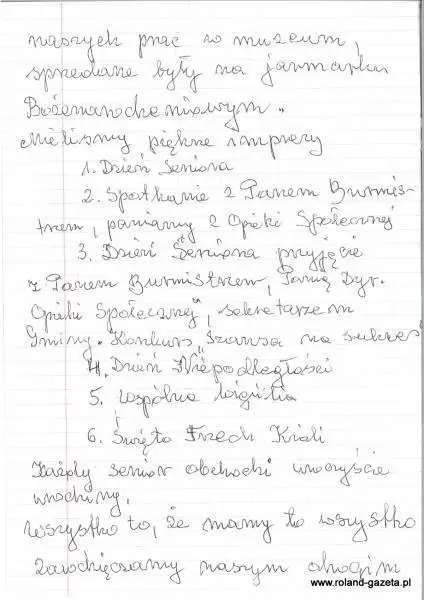 naszych prac w muzeum,
sprzedane były na jarmarku
Bożenarodzeniowym.
Mieliśmy piękne imprezy
1. Dzień Seniora
2. Spotkanie z Panem Burmis-
trzem, paniamy z Opieki Społecznej
3. Dzień Seniora przyjęcie
z Panem Burmistrzem, Panią Dyr.
Opieki Społecznej, sekretarzem
Gminy. Konkurs "Szansa na sukces"
4. Dzień Niepodległości
5. wspólna wigilia
6. Święto Trzech Króli
Każdy senior obchodzi uroczyście
urodziny.
Wszystko to, że mamy to wszystko
zawdzięczamy naszym drogim
www.roland-gazeta.pl